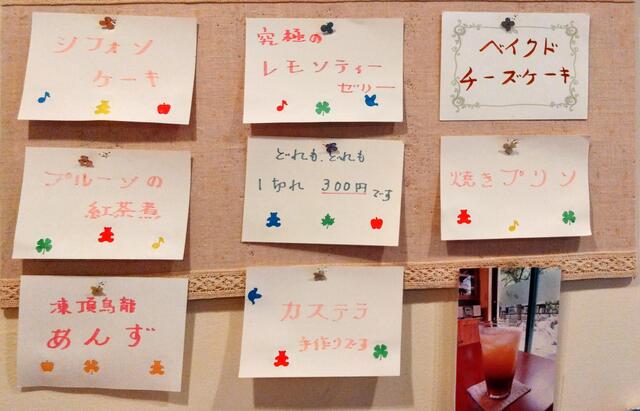 シフォン
ケーキ
究極の
レモンティー
ゼリー
ベイクド
チーズケーキ
プルーンの
紅茶煮
どれも、どれも
1切れ 300円です
焼きプリン
凍頂烏龍
あんず
カステラ
手作りです